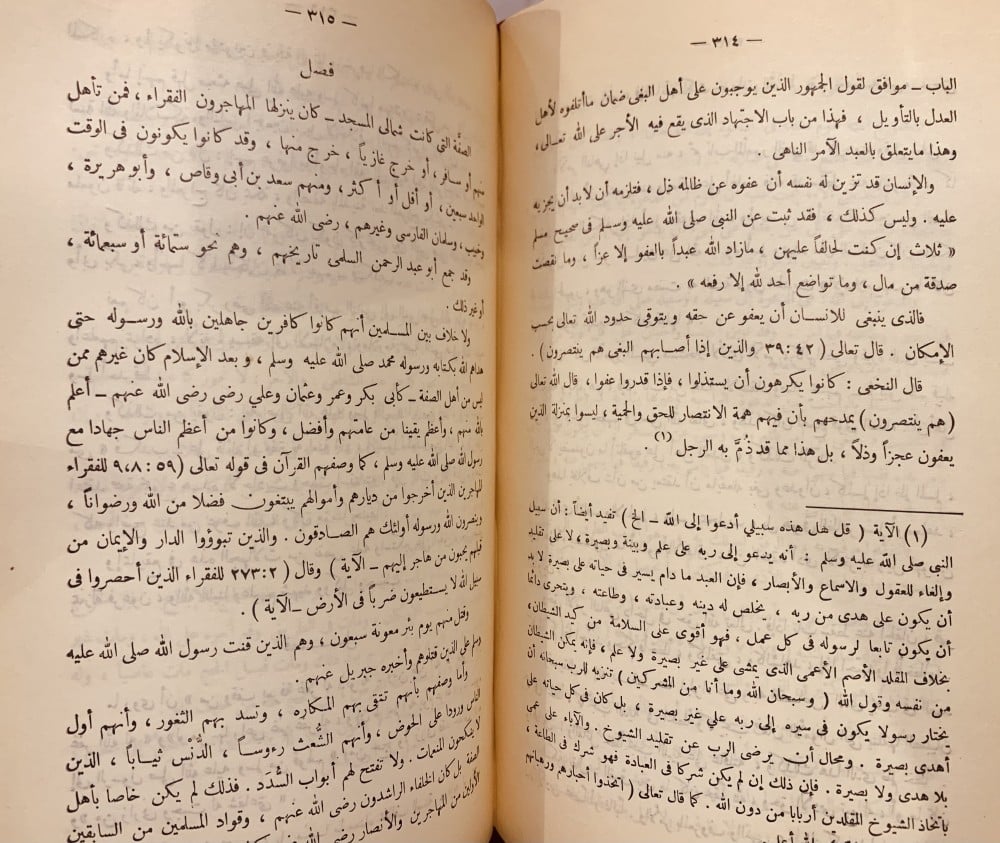 — ٣١٤ —
الباب — موافق لقول الجمهور الذين يوجبون على أهل البغى ضمان ماأتلفوه لأهل
العدل بالتأويل ، فهذا من باب الاجتهاد الذى يقع فيه الأجر على الله تعالى ،
وهذا مايتعلق بالعبد الآمر الناهى .
والإنسان قد تزين له نفسه أن عفوه عن ظالمه ذل ، فتلزمه أن لابد أن يجزيه
عليه . وليس كذلك ، فقد ثبت عن النبي صلى الله عليه وسلم فى صحيح مسلم
« ثلاث إن كنت لحالفاً عليهن ، مازاد الله عبداً بالعفو إلا عزاً ، وما نقصت
صدقة من مال ، وما تواضع أحد لله إلا رفعه » .
فالذى ينبغى للانسان أن يعفو عن حقه ويتوقى حدود الله تعالى بحسب
الإمكان . قال تعالى ( ٣٩:٤٢ والذين إذا أصابهم البغى هم ينتصرون ) .
قال النخعى : كانوا يكرهون أن يستذلوا ، فإذا قدروا عفوا ، قال الله تعالى
( هم ينتصرون ) يمدحهم بأن فيهم همة الانتصار للحق والحمية ، ليسوا بمنزلة الذين
يعفون عجزاً وذلاً ، بل هذا مما قد ذُمَّ به الرجل (١) .
(١) الآية ( قل هل هذه سبيلي أدعوا إلى الله — الخ ) تفيد أيضاً : أن سبيل
النبي صلى الله عليه وسلم : أنه يدعو إلى ربه على علم وبينة وبصيرة ، لا على تقليد
وإلغاء للعقول والاسماع والأبصار ، فإن العبد ما دام يسير فى حياته على بصيرة لا بد
أن يكون على هدى من ربه ، يخلص له دينه وعبادته ، وطاعته ، ويتحرى دائما
أن يكون تابعا لرسوله فى كل عمل ، فهو أقوى على السلامة من كيد الشيطان ،
بخلاف المقلد الأصم الأعمى الذى يمشى على غير بصيرة ولا علم ، فإنه يمكن الشيطان
من نفسه وقول الله ( وسبحان الله وما أنا من المشركين ) تنزيه للرب سبحانه أن
يختار رسولا يكون فى سيره إلى ربه علي غير بصيرة ، بل كان فى كل حياته على
أهدى بصيرة . ومحال أن يرضى الرب عن تقليد الشيوخ . والآباء على عمى
بلا هدى ولا بصيرة . فإن ذلك إن لم يكن شركا فى العبادة فهو شرك فى الطاعة ،
باتخاذ الشيوخ المقلدين أربابا من دون الله . كما قال تعالى ( اتخذوا أحبارهم ورهبانهم
— ٣١٥ —
فصل
الصفَّة التى كانت شمالى المسجد — كان ينزلها المهاجرون الفقراء ، فمن تأهل
منهم أو سافر ، أو خرج غازياً ، خرج منها ، وقد كانوا يكونون فى الوقت
الواحد سبعين ، أو أقل أو أكثر ، ومنهم سعد بن أبى وقاص ، وأبو هريرة ،
وخبيب ، وسلمان الفارسى وغيرهم ، رضى الله عنهم .
وقد جمع أبو عبد الرحمن السلمى تاريخهم ، وهم نحو ستمائة أو سبعمائة ،
أو غير ذلك .
ولا خلاف بين المسلمين أنهم كانوا كافرين جاهلين بالله ورسوله حتى
هداهم الله بكتابه ورسوله محمد صلى الله عليه وسلم ، و بعد الإسلام كان غيرهم ممن
ليس من أهل الصفة — كأبى بكر وعمر وعثمان وعلي رضى رضى الله عنهم — أعلم
بالله منهم ، وأعظم يقينا من عامتهم وأفضل ، وكانوا من أعظم الناس جهادا مع
رسول الله صلى الله عليه وسلم ، كما وصفهم القرآن فى قوله تعالى (٩،٨:٥٩ للفقراء
المهاجرين الذين أخرجوا من ديارهم وأموالهم يبتغون فضلا من الله ورضواناً ،
وينصرون الله ورسوله أولئك هم الصادقون . والذين تبوؤوا الدار والإيمان من
قبلهم يحبون من هاجر إليهم — الآية ) وقال ( ٢٧٣:٢ للفقراء الذين أحصروا فى
سبيل الله لا يستطيعون ضرباً فى الأرض — الآية ) .
وقتل منهم يوم بئر معونة سبعون ، وهم الذين قنت رسول الله صلى الله عليه
وسلم على الذين قتلوهم وأخبره جبريل عنهم .
وأما وصفهم بأنهم تتقى بهم المكاره ، وتسد بهم الثغور ، وأنهم أول
الناس ورودا على الحوض ، وأنهم الشُّعث رءوساً ، الدُّنْس ثياباً ، الذين
لا ينكحون المنعمات . ولا تفتح لهم أبواب السُّدَد . فذلك لم يكن خاصا بأهل
الصفة بل كان الخلفاء الراشدون رضى الله عنهم ، وقواد المسلمين من السابقين
الأولين من المهاجرين والأنصار رضى الله